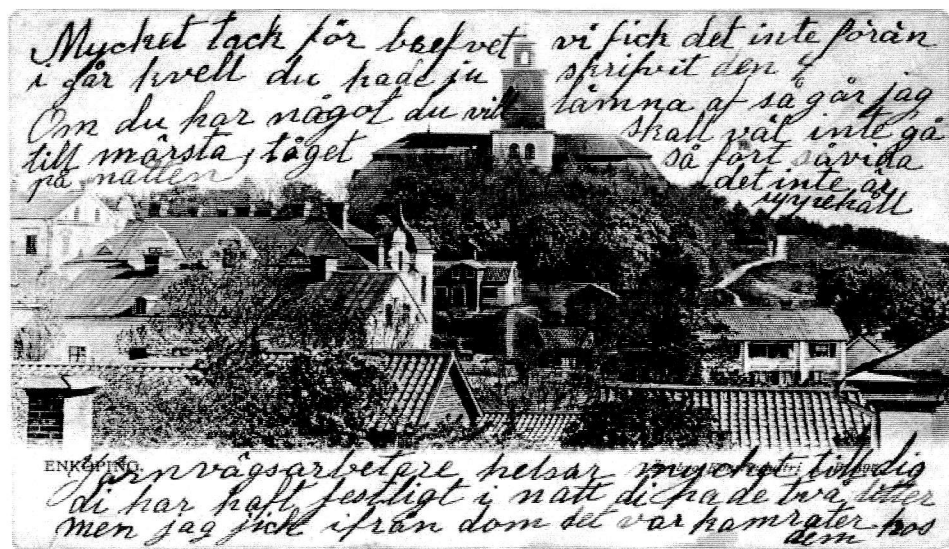 Mycket tack för brefvet vi fick det inte förän
i går kvell du hade ju skrifvit den
Om du har något du vill lämna af så går jag
till märsta, tåget skall väl inte gå
på natten så fort såvida
det inte är
uppehåll
ENKÖPING.
Järnvägsarbetare helsar mycket till dig
di har haft festligt i natt di hade två
men jag fick ifrån dom det var kamrater hos
dem